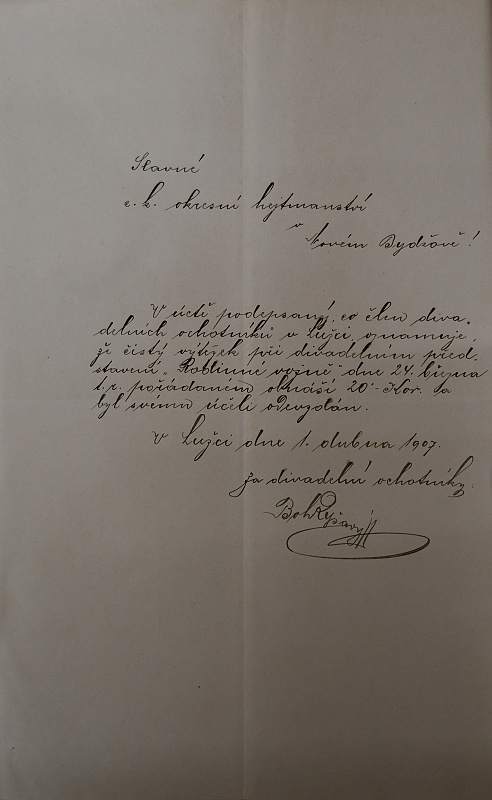 Slavné
c. k. okresní hejtmanství
v
Novém Bydžově!
V úctě podepsaný, co člen diva-
delních ochotníků v Lužci, oznamuje,
že čistý výtěžek při divadelním před-
stavení „Rodinná vojna" dne 24. března
t. r. pořádaném obnáší 20·- Kor. a
byl svému účeli odevzdán.
V Lužci dne 1. dubna 1907.
Za divadelní ochotníky:
Boh. Ryšavý